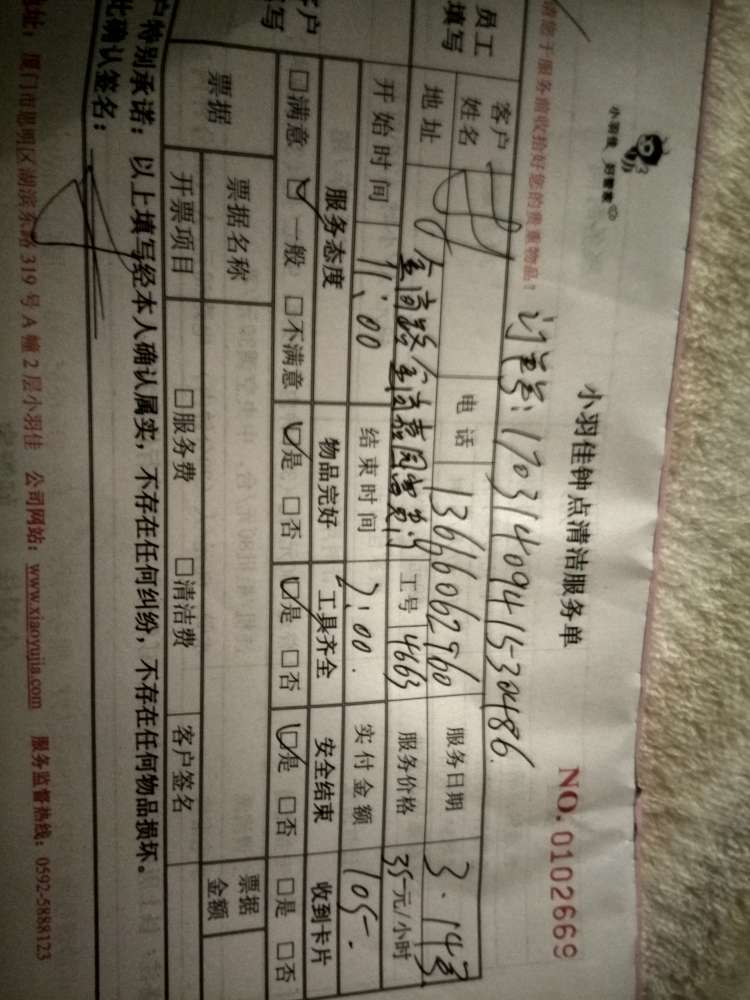 小羽佳 好管家
小羽佳钟点清洁服务单
请您于服务前收拾好您的贵重物品!
订单号:17031409415-30486
NO.0102669
员工填写
客户姓名
电话 13666062960
服务日期 3.14号
地址
工号 4663
服务价格 35元/小时
开始时间 11:00
结束时间 2:00.
实付金额 105.
客户填写
服务态度 物品完好 工具齐全 安全结束 收到卡片
□满意 ☑一般 □不满意 ☑是 □否 ☑是 □否 ☑是 □否 □是 □否
票据
票据名称
票据金额
开票项目 □服务费 □清洁费 客户签名
户特别承诺:以上填写经本人确认属实,不存在任何纠纷,不存在任何物品损坏。
此确认签名:
地址:厦门市思明区湖滨东路319号A幢2层小羽佳 公司网站:www.xiaoyujia.com 服务监督热线:0592-5888123